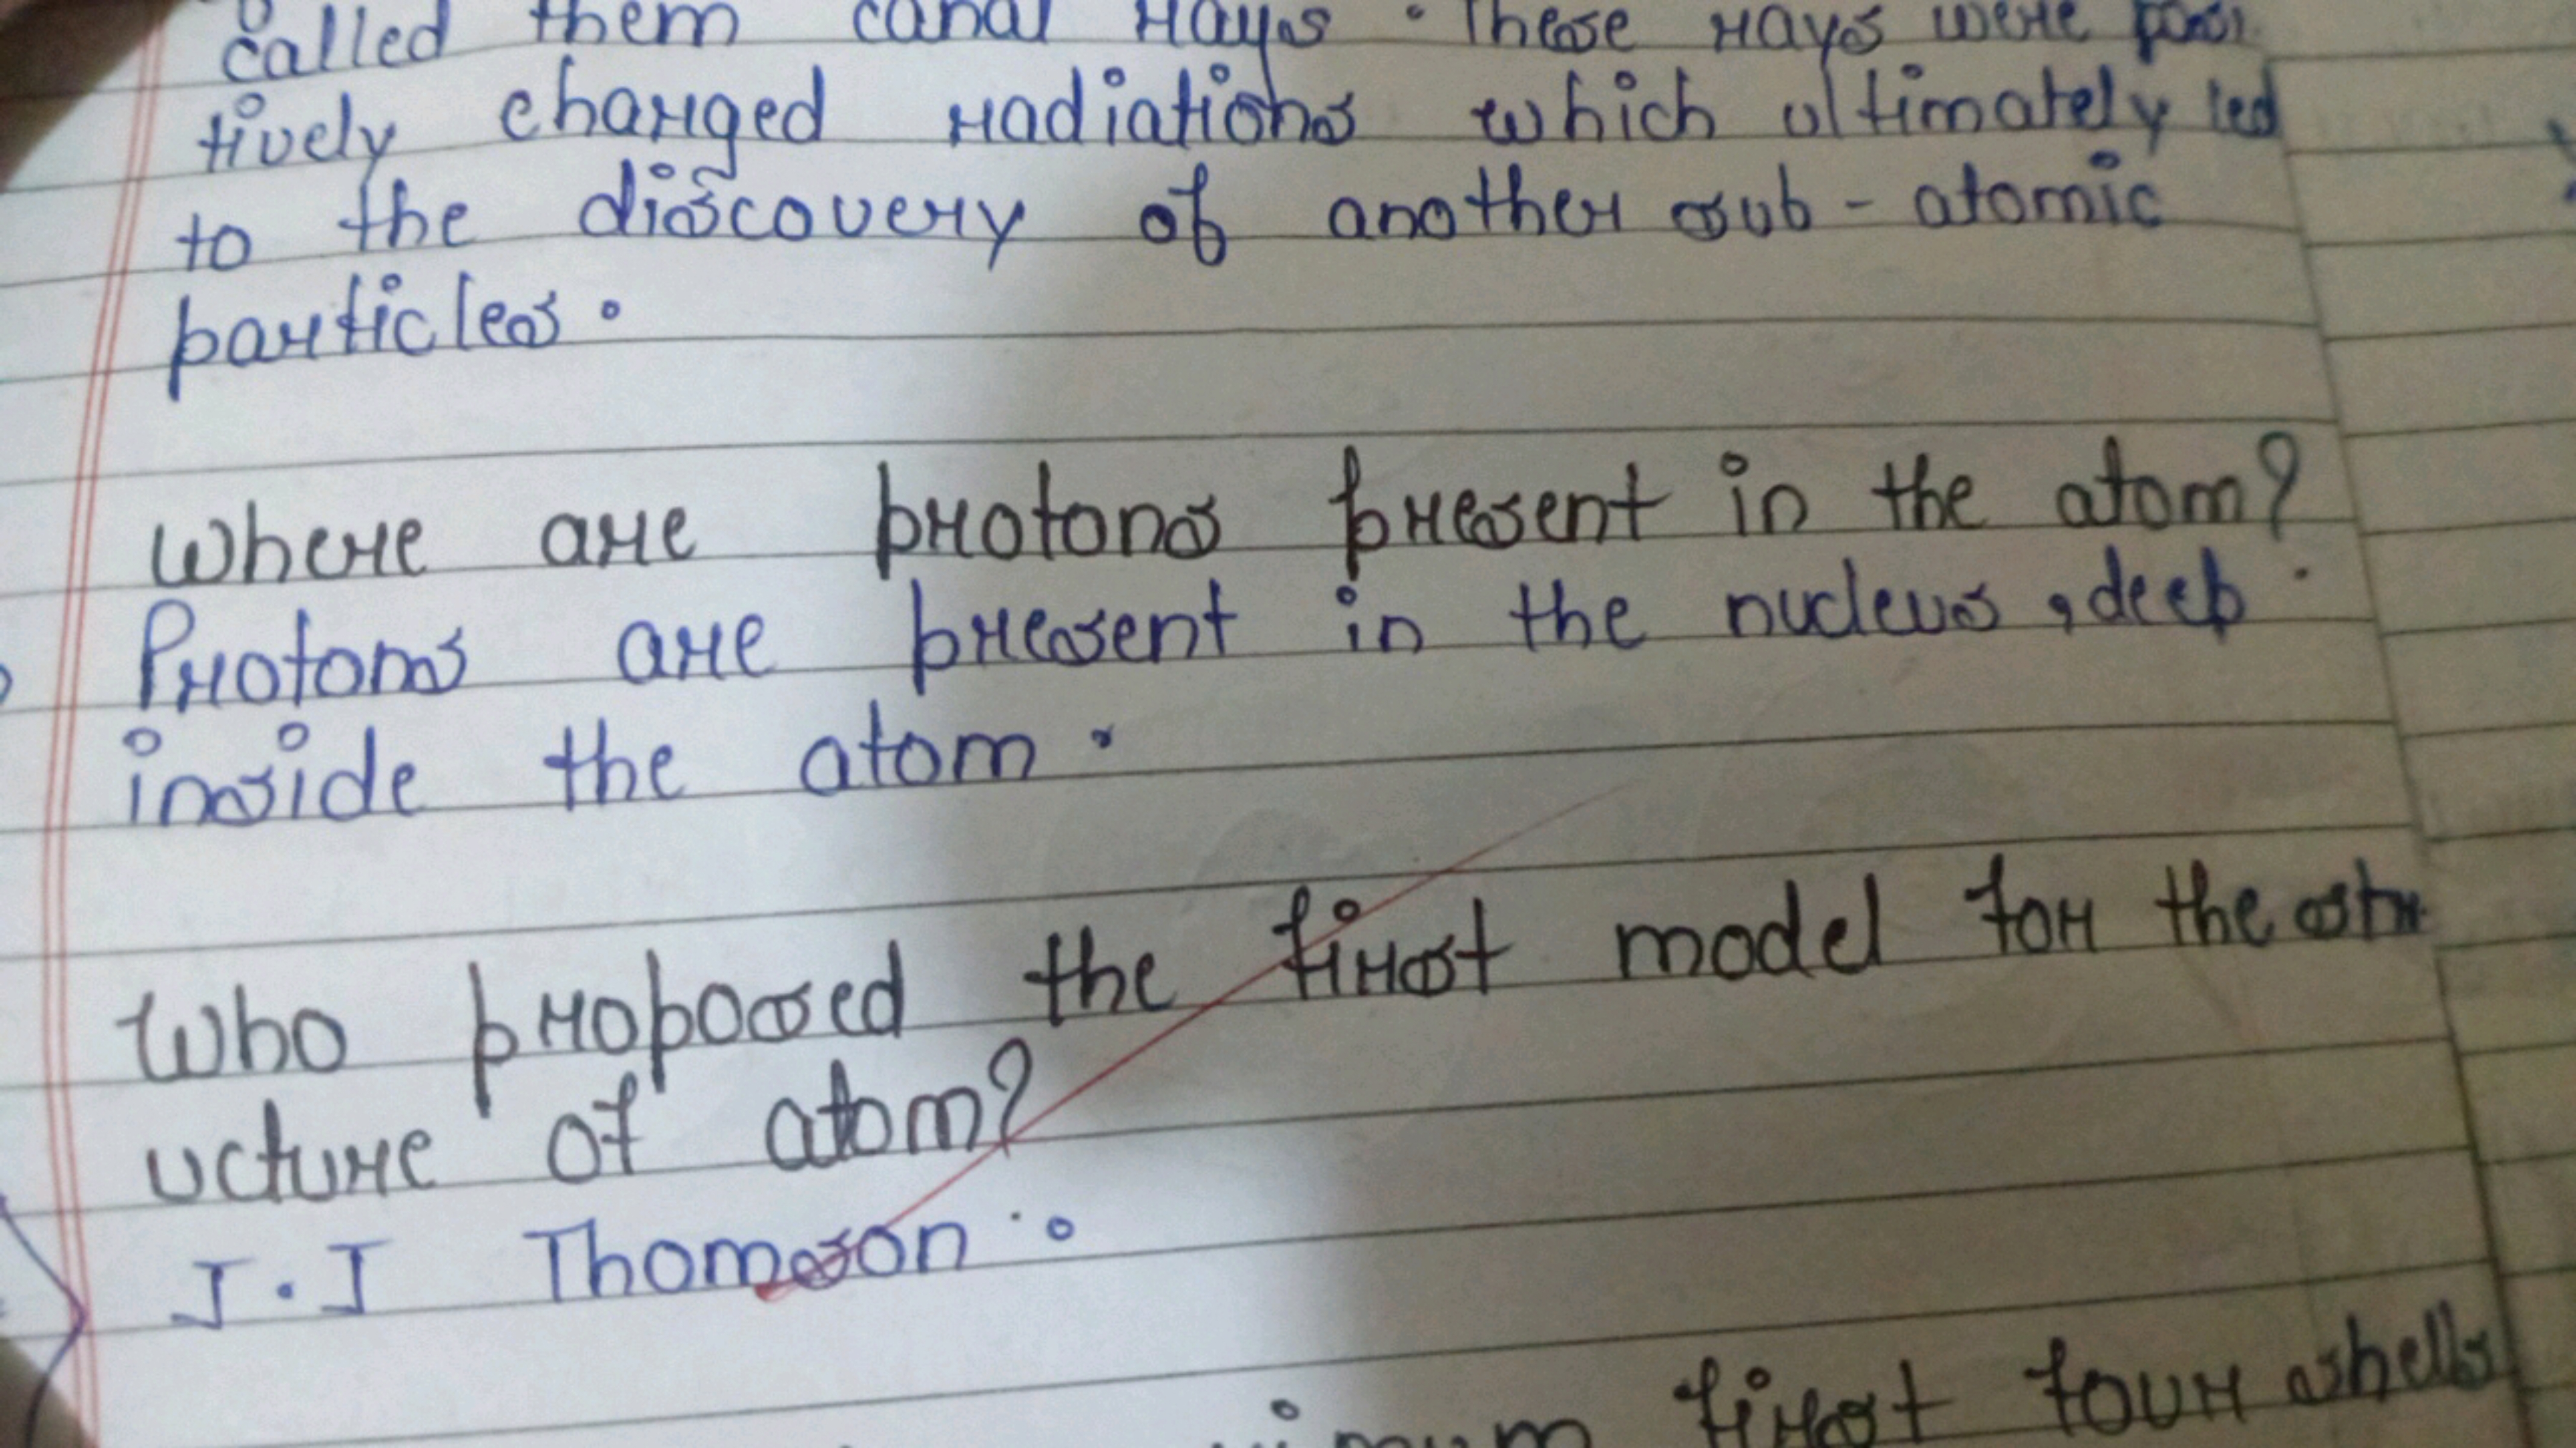 called them canal rays . These rays were posi
tively charged radiations which ultimately led
to the discovery of another sub - atomic
particles .
Where are protons present in the atom?
Protons are present in the nucleus , deep
inside the atom .
Who proposed the first model for the str
ucture of atom?
J . J Thomson .
first four shells